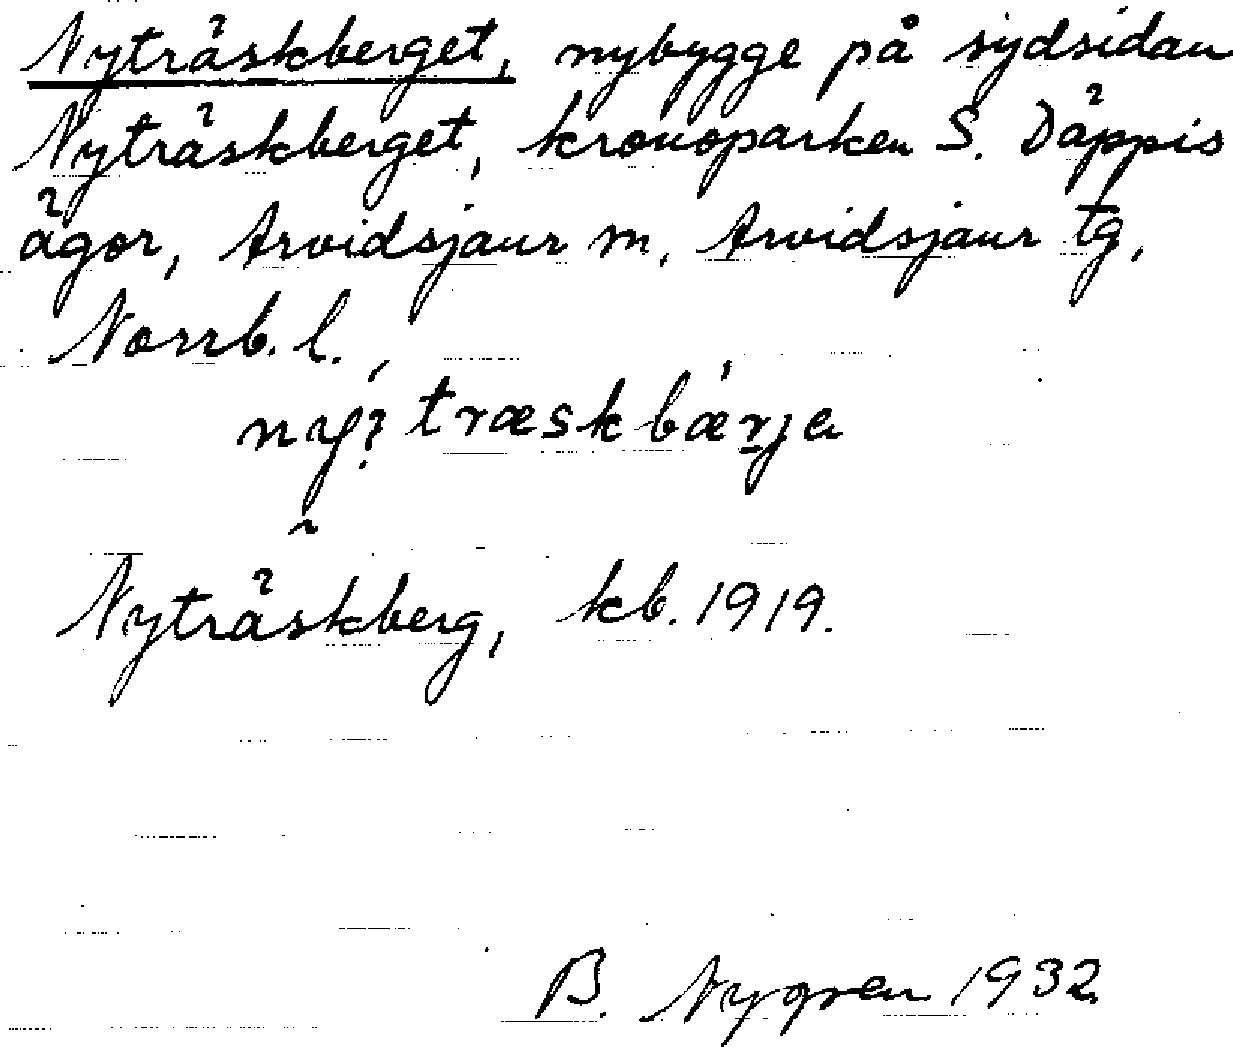 Nyträskberget, nybygge på sydsidan
Nyträskberget, kronoparken S. Däppis
ägor, Arvidsjaur sn, Arvidsjaur tg,
Norrb. l.
träskbärja
Nyträskberg, kb. 1919.
B. Nygren 1932